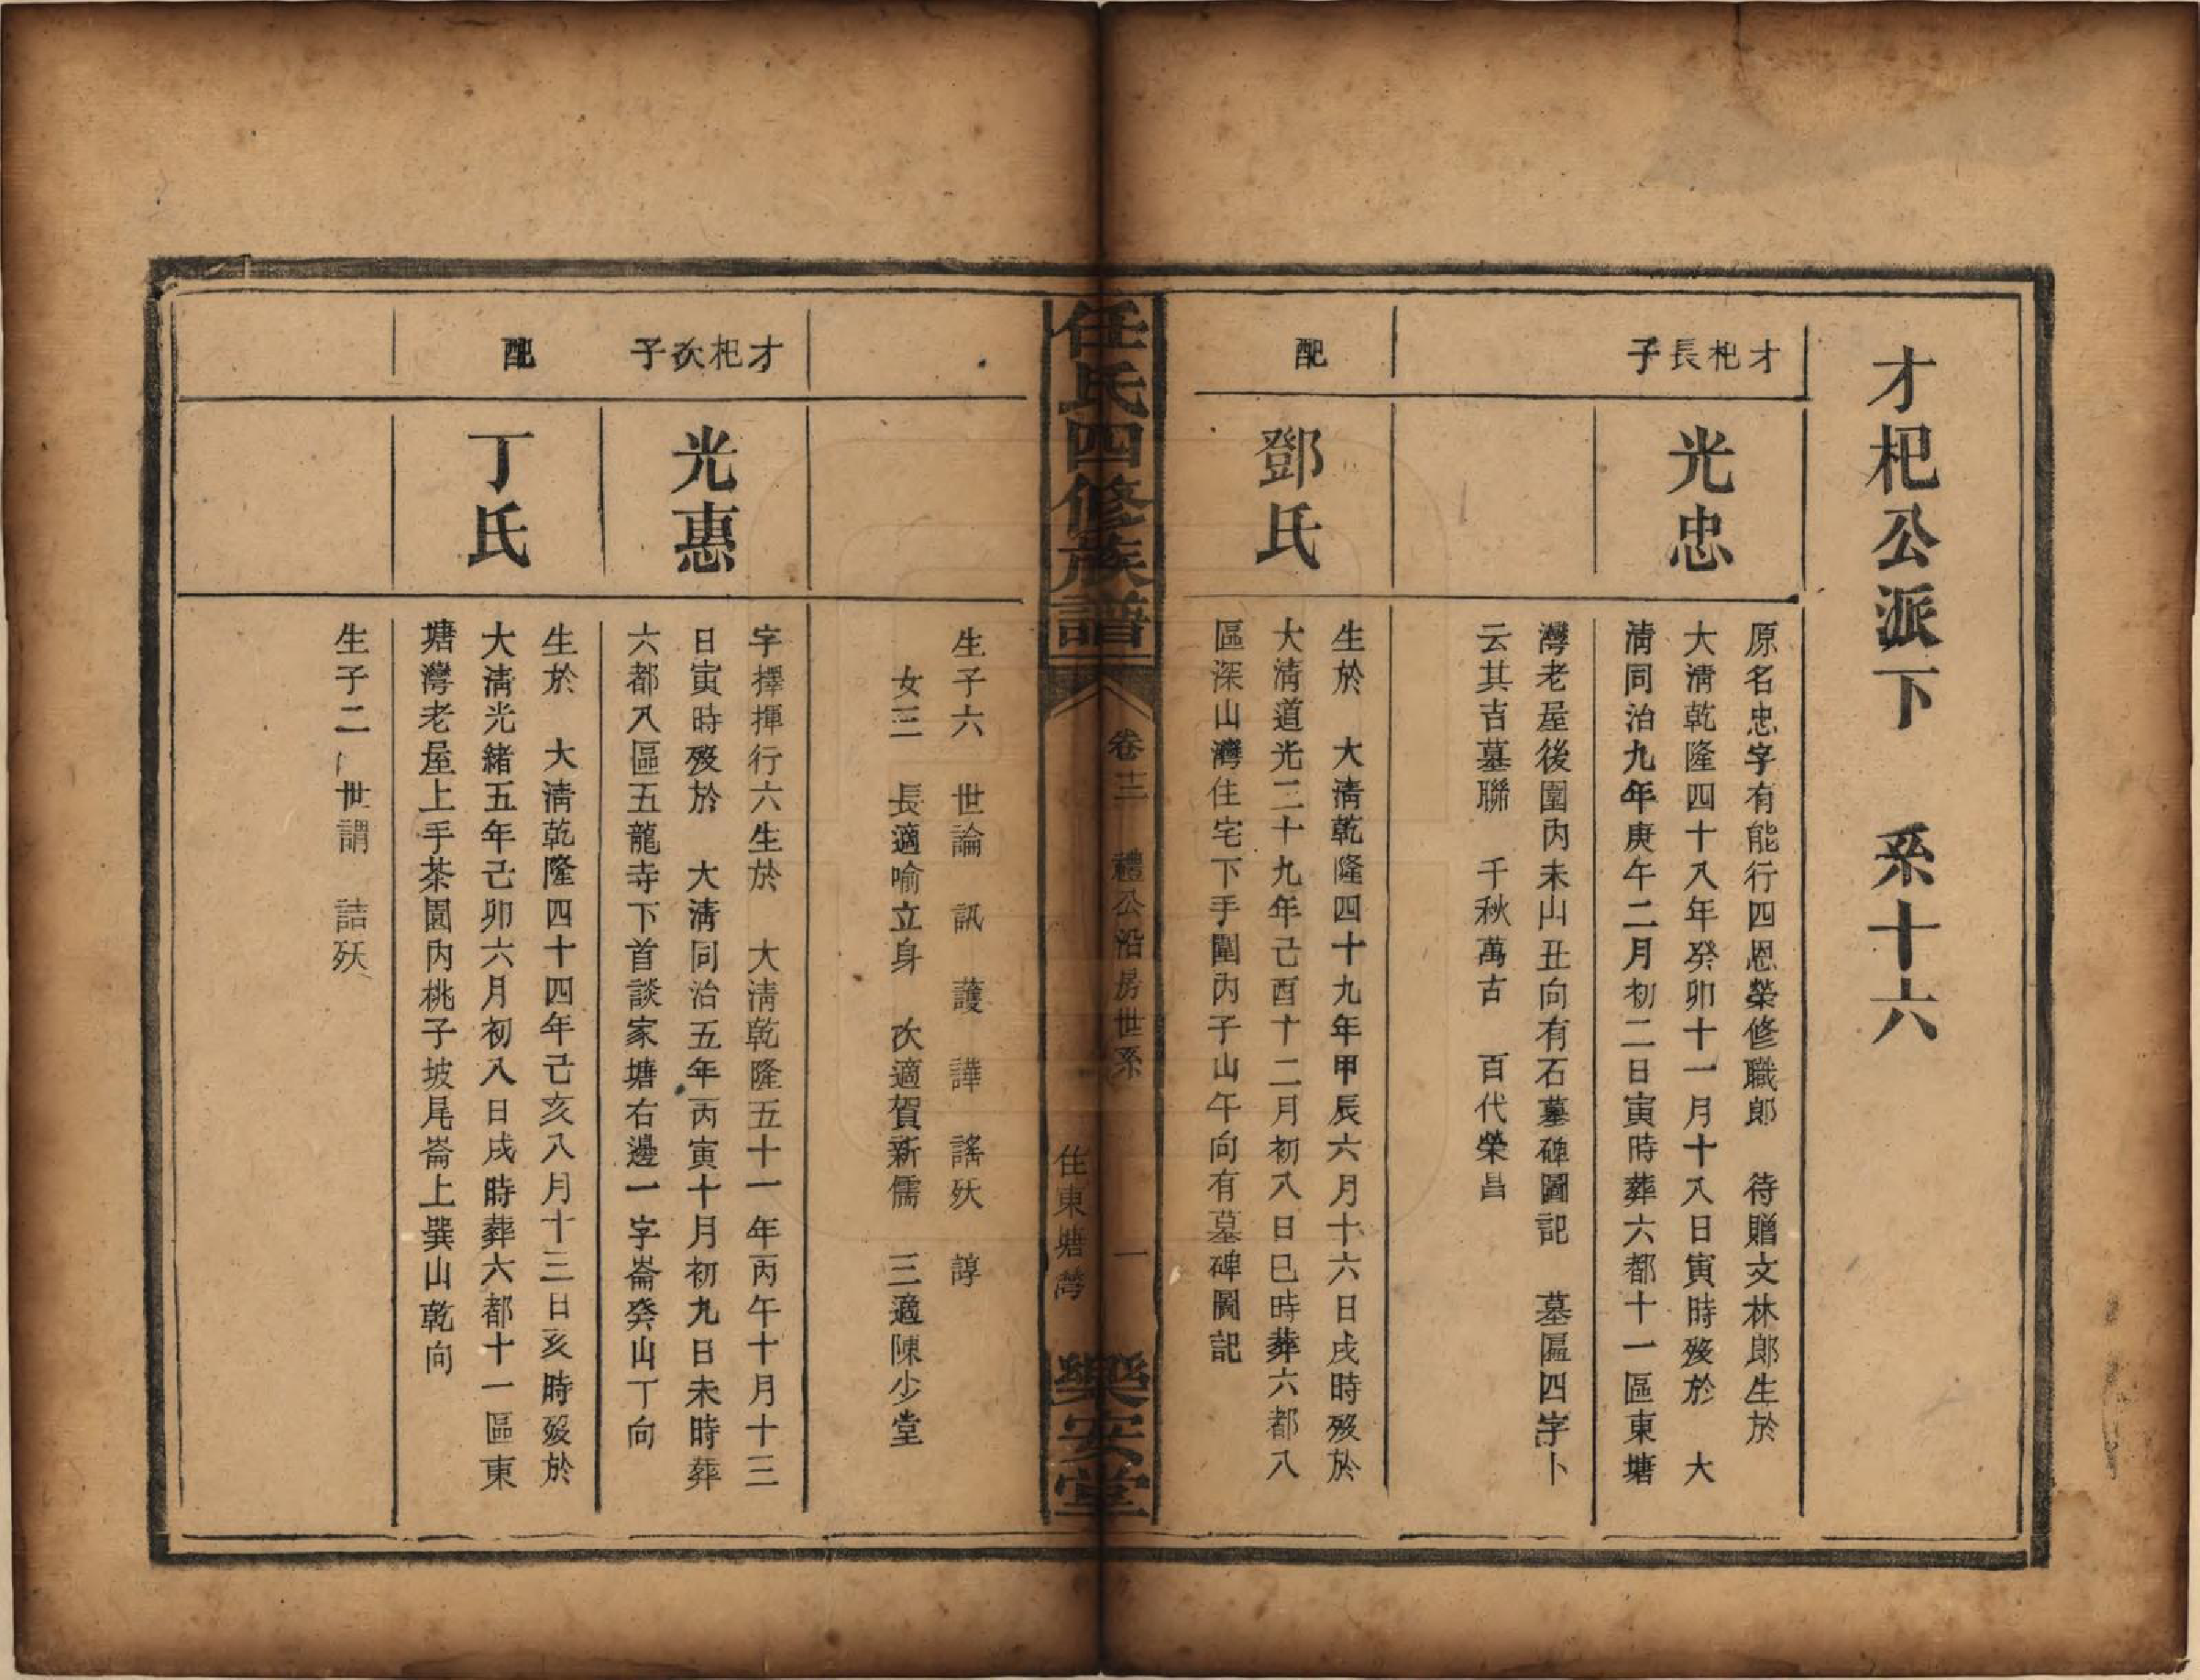 才杞公派下　系十六
才杞長子
光忠
原名忠字有能行四恩榮修職郎　待贈文林郎生於
大清乾隆四十八年癸卯十一月十八日寅時歿於　大
清同治九年庚午二月初二日寅時葬六都十一區東塘
灣老屋後園內未山丑向有石墓碑圖記　墓匾四字卜
云其吉墓聯　千秋萬古　百代榮昌
配
鄧氏
生於　大清乾隆四十九年甲辰六月十六日戌時歿於
大清道光二十九年己酉十二月初八日巳時葬六都八
區深山灣住宅下手園內子山午向有墓碑圖記
任氏四修族譜
卷十三　禮公沿房世系　一
住東塘灣
樂安堂
生子六　世論　訊　護　譁　謠殀　諄
女三　長適喻立身　次適賀新儒　三適陳少堂
才杞次子
光惠
字擇揮行六生於　大清乾隆五十一年丙午十月十三
日寅時歿於　大清同治五年丙寅十月初九日未時葬
六都八區五龍寺下首談家塘右邊一字崙癸山丁向
配
丁氏
生於　大清乾隆四十四年己亥八月十三日亥時歿於
大清光緒五年己卯六月初八日戌時葬六都十一區東
塘灣老屋上手茶園內桃子坡尾崙上巽山乾向
生子二　世謂　詰殀